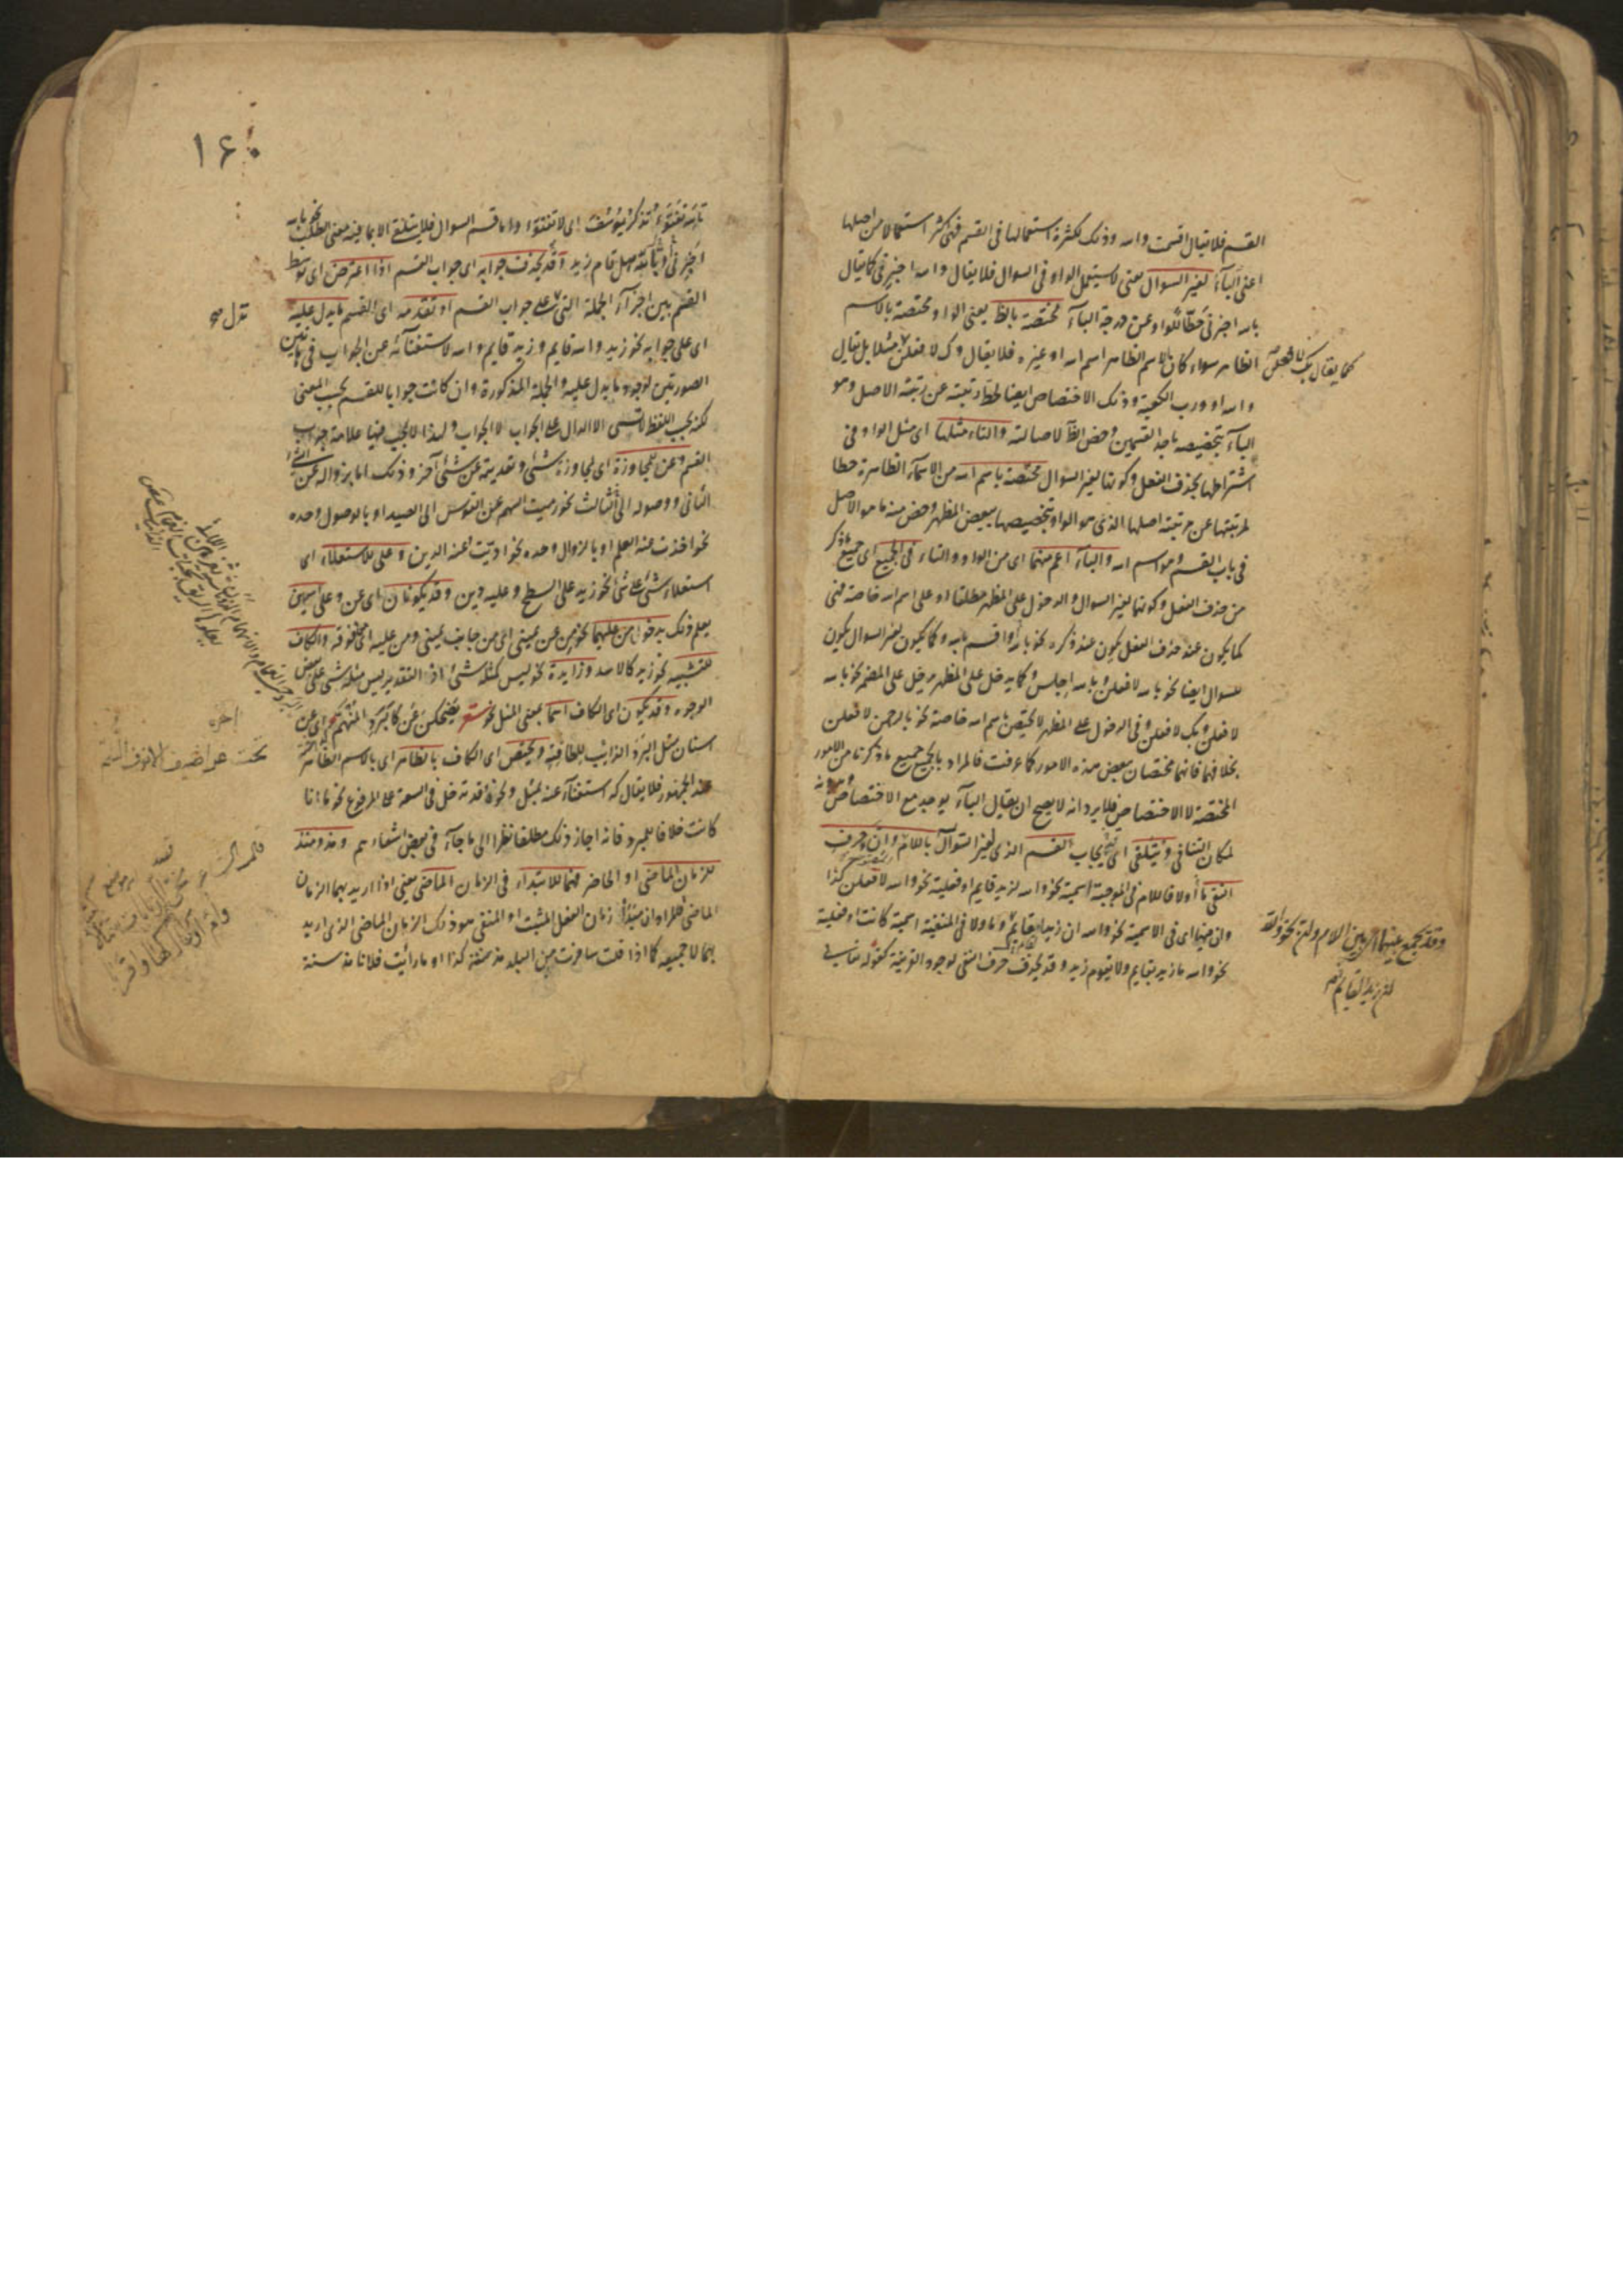 القسم فلا يقال اقسمت والله وذلك لكثرة استعمالها في القسم فهي اكثر استعمالا من اصلها
اعني الباء لغير السؤال يعني لا يستعمل الواو في السؤال فلا يقال والله اخبرني كما يقال
بالله اخبرني حطا للواو عن درجة الباء مختصة بالظ يعني الواو مختصة بالاسم
الظاهر سواء كان الاسم الظاهر اسم الله او غيره فلا يقال وك لافعلن مثلا بل يقال
والله او ورب الكعبة وذلك الاختصاص ايضا لحط رتبته عن رتبة الاصل وهو
الباء بتخصيصه باحد القسمين وخص الظ لاصالته والتاء مثلها اى مثل الواو في
اشتراطها بحذف الفعل وكونها لغير السوال مختصة باسم الله من الاسماء الظاهرة حطا
لمرتبتها عن مرتبة اصلها الذي هو الواو بتخصيصها ببعض المظهر وخص منه ما هو الاصل
في باب القسم وهو اسم الله والباء اعم منهما اى من الواو والتاء في الجميع اى جميع ما ذكر
من حذف الفعل وكونها لغير السوال والدخول على المظهر مطلقا او على اسم الله خاصة فهي
كما يكون عند حذف الفعل يكون عند ذكره نحو بالله واقسم بالله وكما يكون لغير السوال يكون
للسوال ايضا نحو بالله لافعلن وبالله اجلس وكما يدخل على المظهر يدخل على المضمر نحو بالله
لافعلن وبك لافعلن وفي الدخول على المظهر لا يختص باسم الله خاصة نحو بالرحمن لافعلن
بخلافهما فانهما مختصان ببعض هذه الامور كما عرفت فالمراد بالجميع جميع ما ذكرنا من الامور
المختصة لا الاختصاص فلا يرد انه لا يصح ان يقال الباء يوجد مع الاختصاص وبدونه
لمكان التنافي ويتلقى اى يجاب القسم الذي لغير السؤال باللام وان وحرف
النفي ما او لا فاللام في الموجبة اسمية نحو والله لزيد قايم او فعلية نحو والله لافعلن كذا
وان فيها اى في الاسمية نحو والله ان زيدا لقايم وما ولا في المنفية اسمية كانت او فعلية
نحو والله ما زيد بقايم ولا يقوم زيد وقد يحذف حرف النفي لوجود القرينة كقوله تعالى
كما يقال بك لافعلن
وقد يجمع بينهما اى بين اللام وان نحو والله
ان زيدا لقايم
١٦٠
تالله تفتؤ تذكر يوسف اى لا تفتؤ واما قسم السوال فلا يتلقى الا بما فيه معنى الطلب نحو بالله
اخبرني وبالله هل قام زيد وقد يحذف جوابه اى جواب القسم اذا اعترض اى توسط
القسم بين اجزاء الجملة التي على جواب القسم او تقدمه اى القسم ما يدل عليه
اى على جوابه نحو زيد والله قايم وزيد قايم والله لاستغنائه عن الجواب في هاتين
الصورتين لوجود ما يدل عليه والجملة المذكورة وان كانت جوابا للقسم بحسب المعنى
لكنه بحسب اللفظ لا يسمى الا الدال على الجواب لا الجواب ولهذا لا يجب فيها علامة جواب
القسم وعن للمجاوزة اى لمجاوزة شئ وتعديته عن شئ آخر وذلك اما بزواله عن الشئ
الثاني ووصوله الى الثالث نحو رميت السهم عن القوس الى الصيد او بالوصول وحده
نحو اخذت عنه العلم او بالزوال وحده نحو اديت عنه الدين وعلى للاستعلاء اى
استعلاء شئ على شئ نحو زيد على السطح وعليه دين وقد يكونان اى عن وعلى اسمين
يعلم ذلك بدخول من عليهما نحو من عن يميني اى من جانب يميني ومن عليه اى من فوقه والكاف
للتشبيه نحو زيد كالاسد وزايدة نحو ليس كمثله شئ اذ التقدير ليس مثله شئ على بعض
الوجوه وقد يكون اى الكاف اسما بمعنى المثل نحو شعر يضحكن عن كالبرد المنهم اى عن
اسنان مثل البرد الذائب للطافته ويختص اى الكاف بالظاهر اى بالاسم الظاهر
عند الجمهور فلا يقال كه استغناء عنه بمثل ونحوه وقد تدخل في السعة على المرفوع نحو ما انا
كانت خلافا للمبرد فانه اجاز ذلك مطلقا نظرا الى ما جاء في بعض اشعارهم ومذ ومنذ
للزمان الماضى او الحاضر فهما للابتداء في الزمان الماضى يعني اذا اريد بهما الزمان
الماضى فالمراد ان مبدأ زمان الفعل المثبت او المنفي هو ذلك الزمان الماضى الذي اريد
بهما لا جميعه كما اذا قلت سافرت من البلد مذ سنة كذا او ما رأيت فلانا مذ سنة
تحت عراضيف الانوف الشم